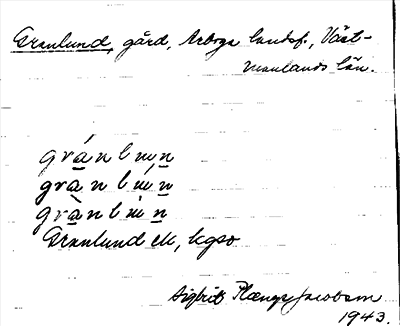 Granlund, gård, Arboga landsf., Väst-
manlands län.
gránlun
gránlún
grànlùn
Granlund ek, kgso
Sigbrit Plænge Jacobson
1943.